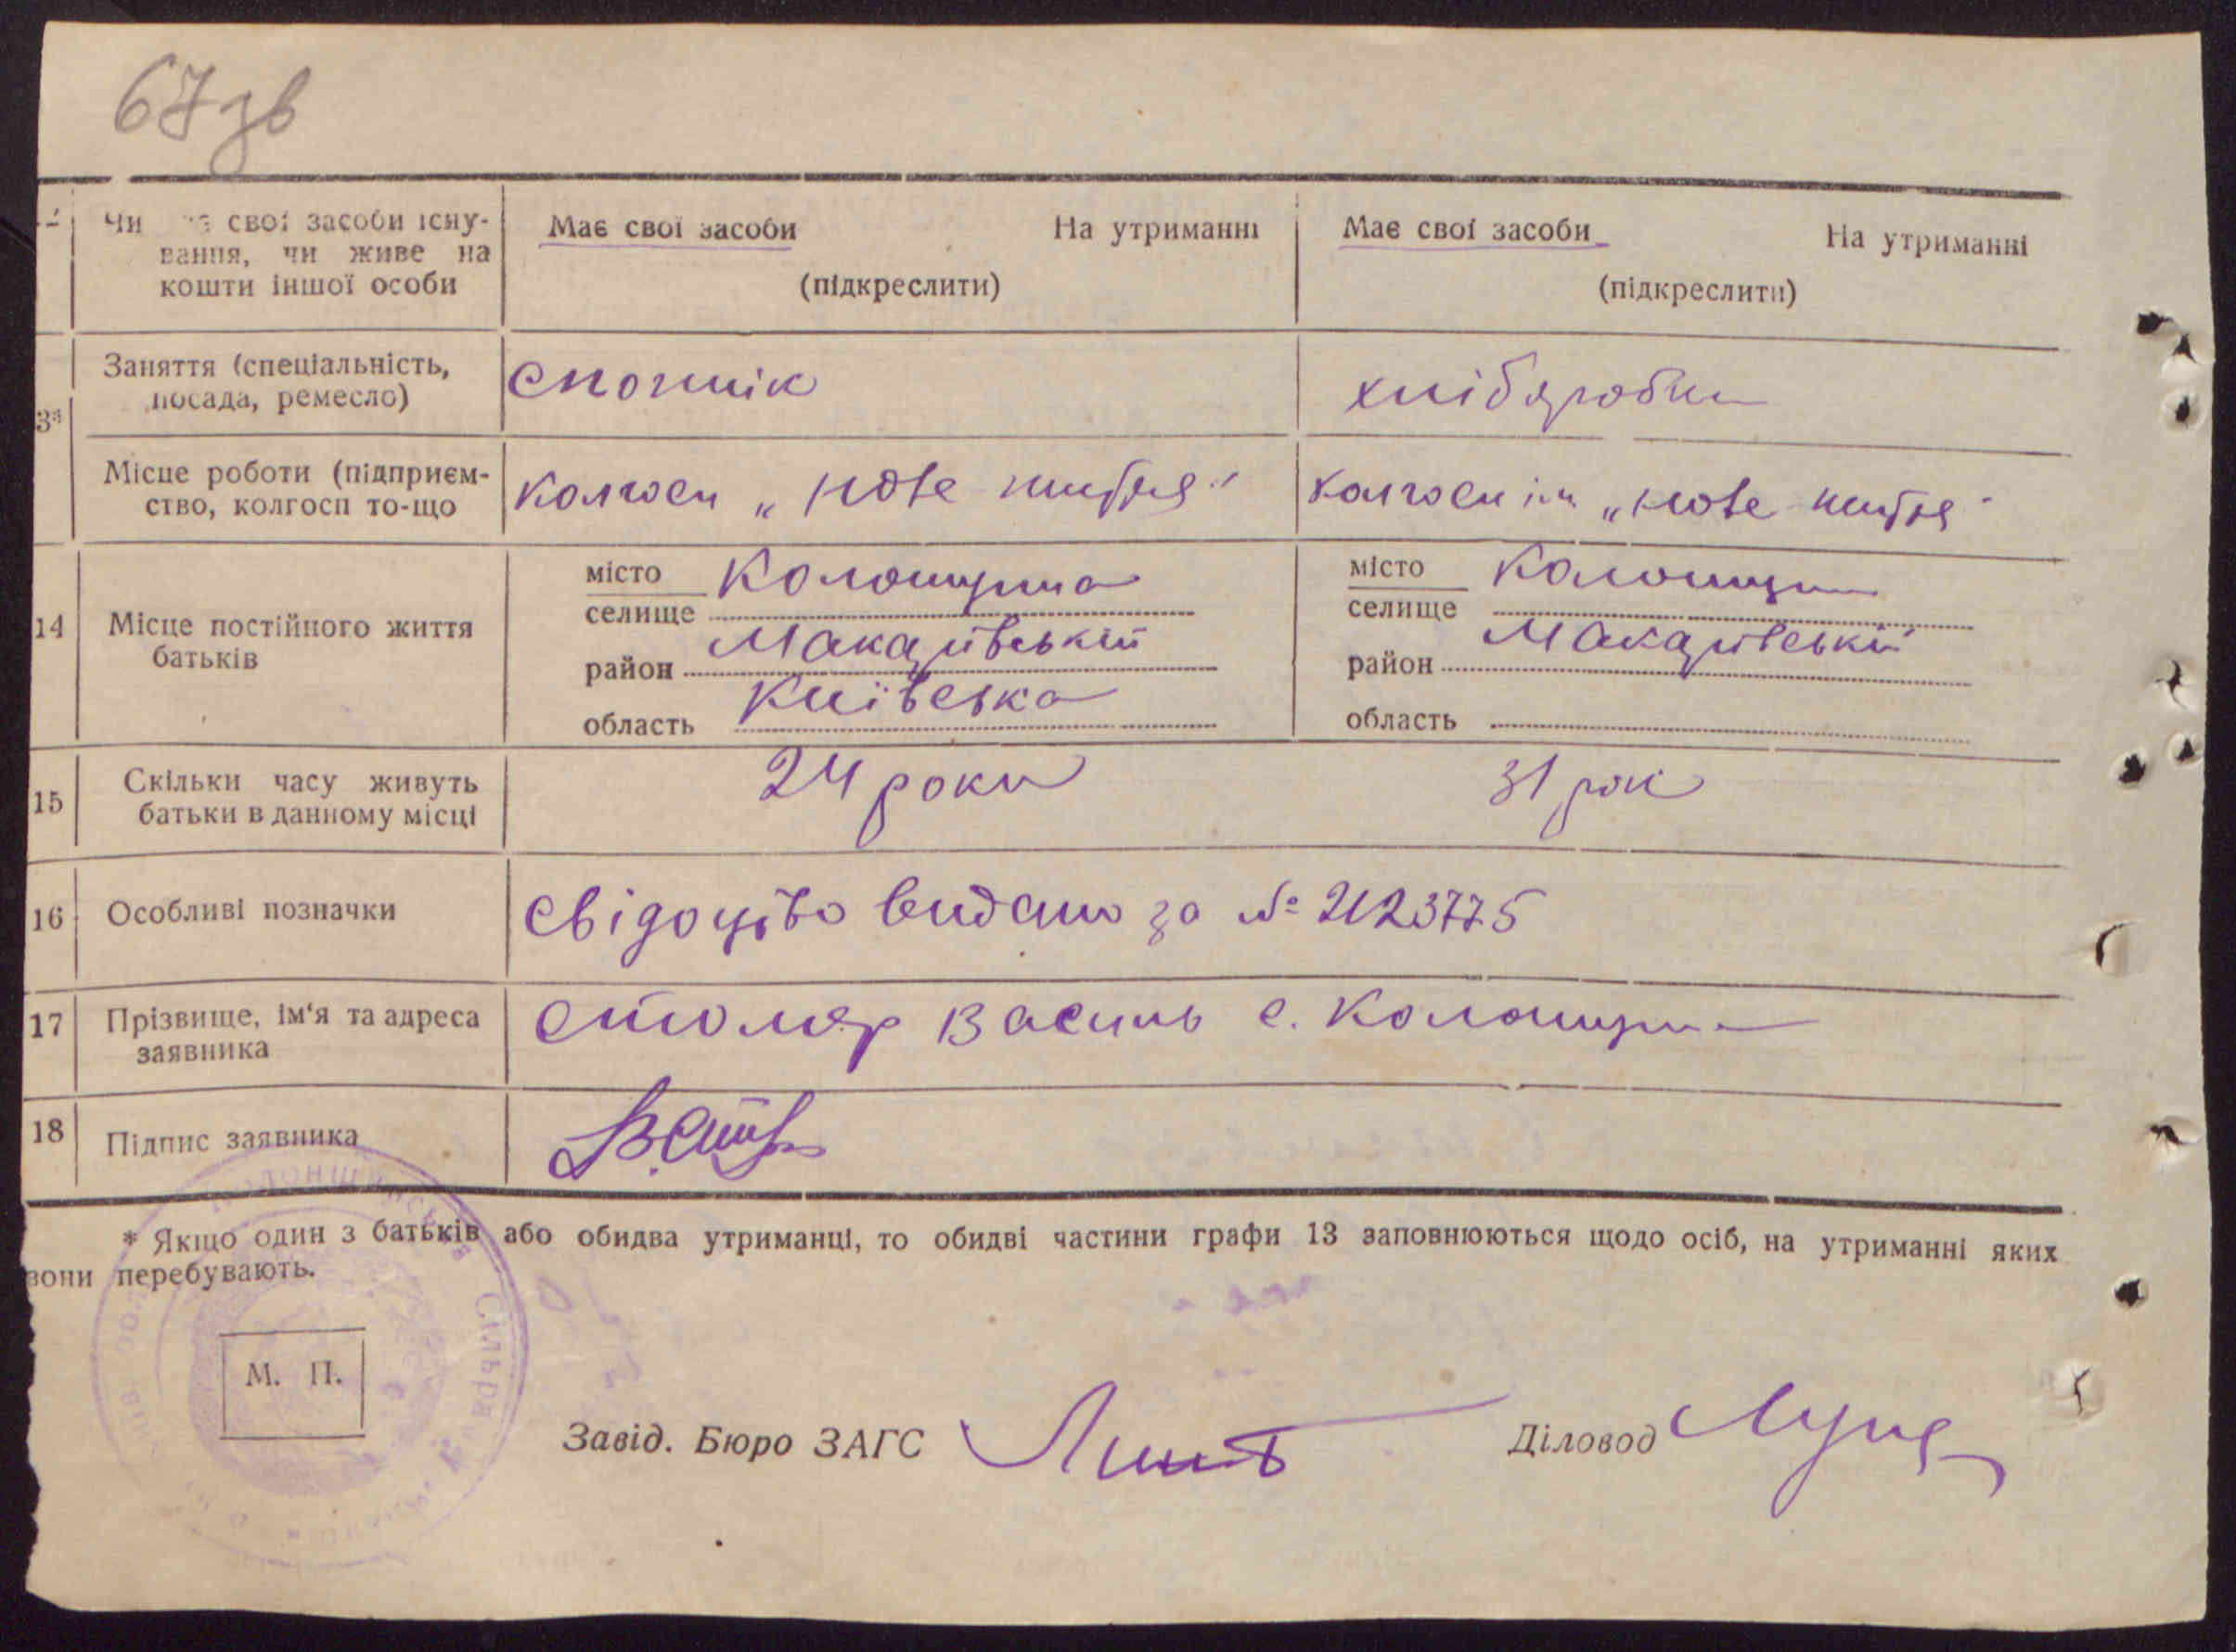 67 зв
Чи свої засоби існу-
вання, чи живе на
кошти іншої особи
Має свої засоби На утриманні
(підкреслити)
Має свої засоби На утриманні
(підкреслити)
Заняття (спеціальність,
посада, ремесло)
хліборобка
Місце роботи (підприєм-
ство, колгосп то-що
колгосп „нове життя"
колгосп ім. „нове життя"
14 Місце постійного життя
батьків
місто
селище Колонщина
район Макарівській
область Київська
місто
селище Колонщина
район Макарівській
область
15 Скільки часу живуть
батьки в данному місці
24 роки
31 рік
16 Особливі позначки
Свідоцтво видано за № 2123775
17 Прізвище, ім'я та адреса
заявника
Столяр Василь с. Колонщина
18 Підпис заявника
* Якщо один з батьків або обидва утриманці, то обидві частини графи 13 заповнюються щодо осіб, на утриманні яких
вони перебувають.
М. П.
Завід. Бюро ЗАГС
Діловод